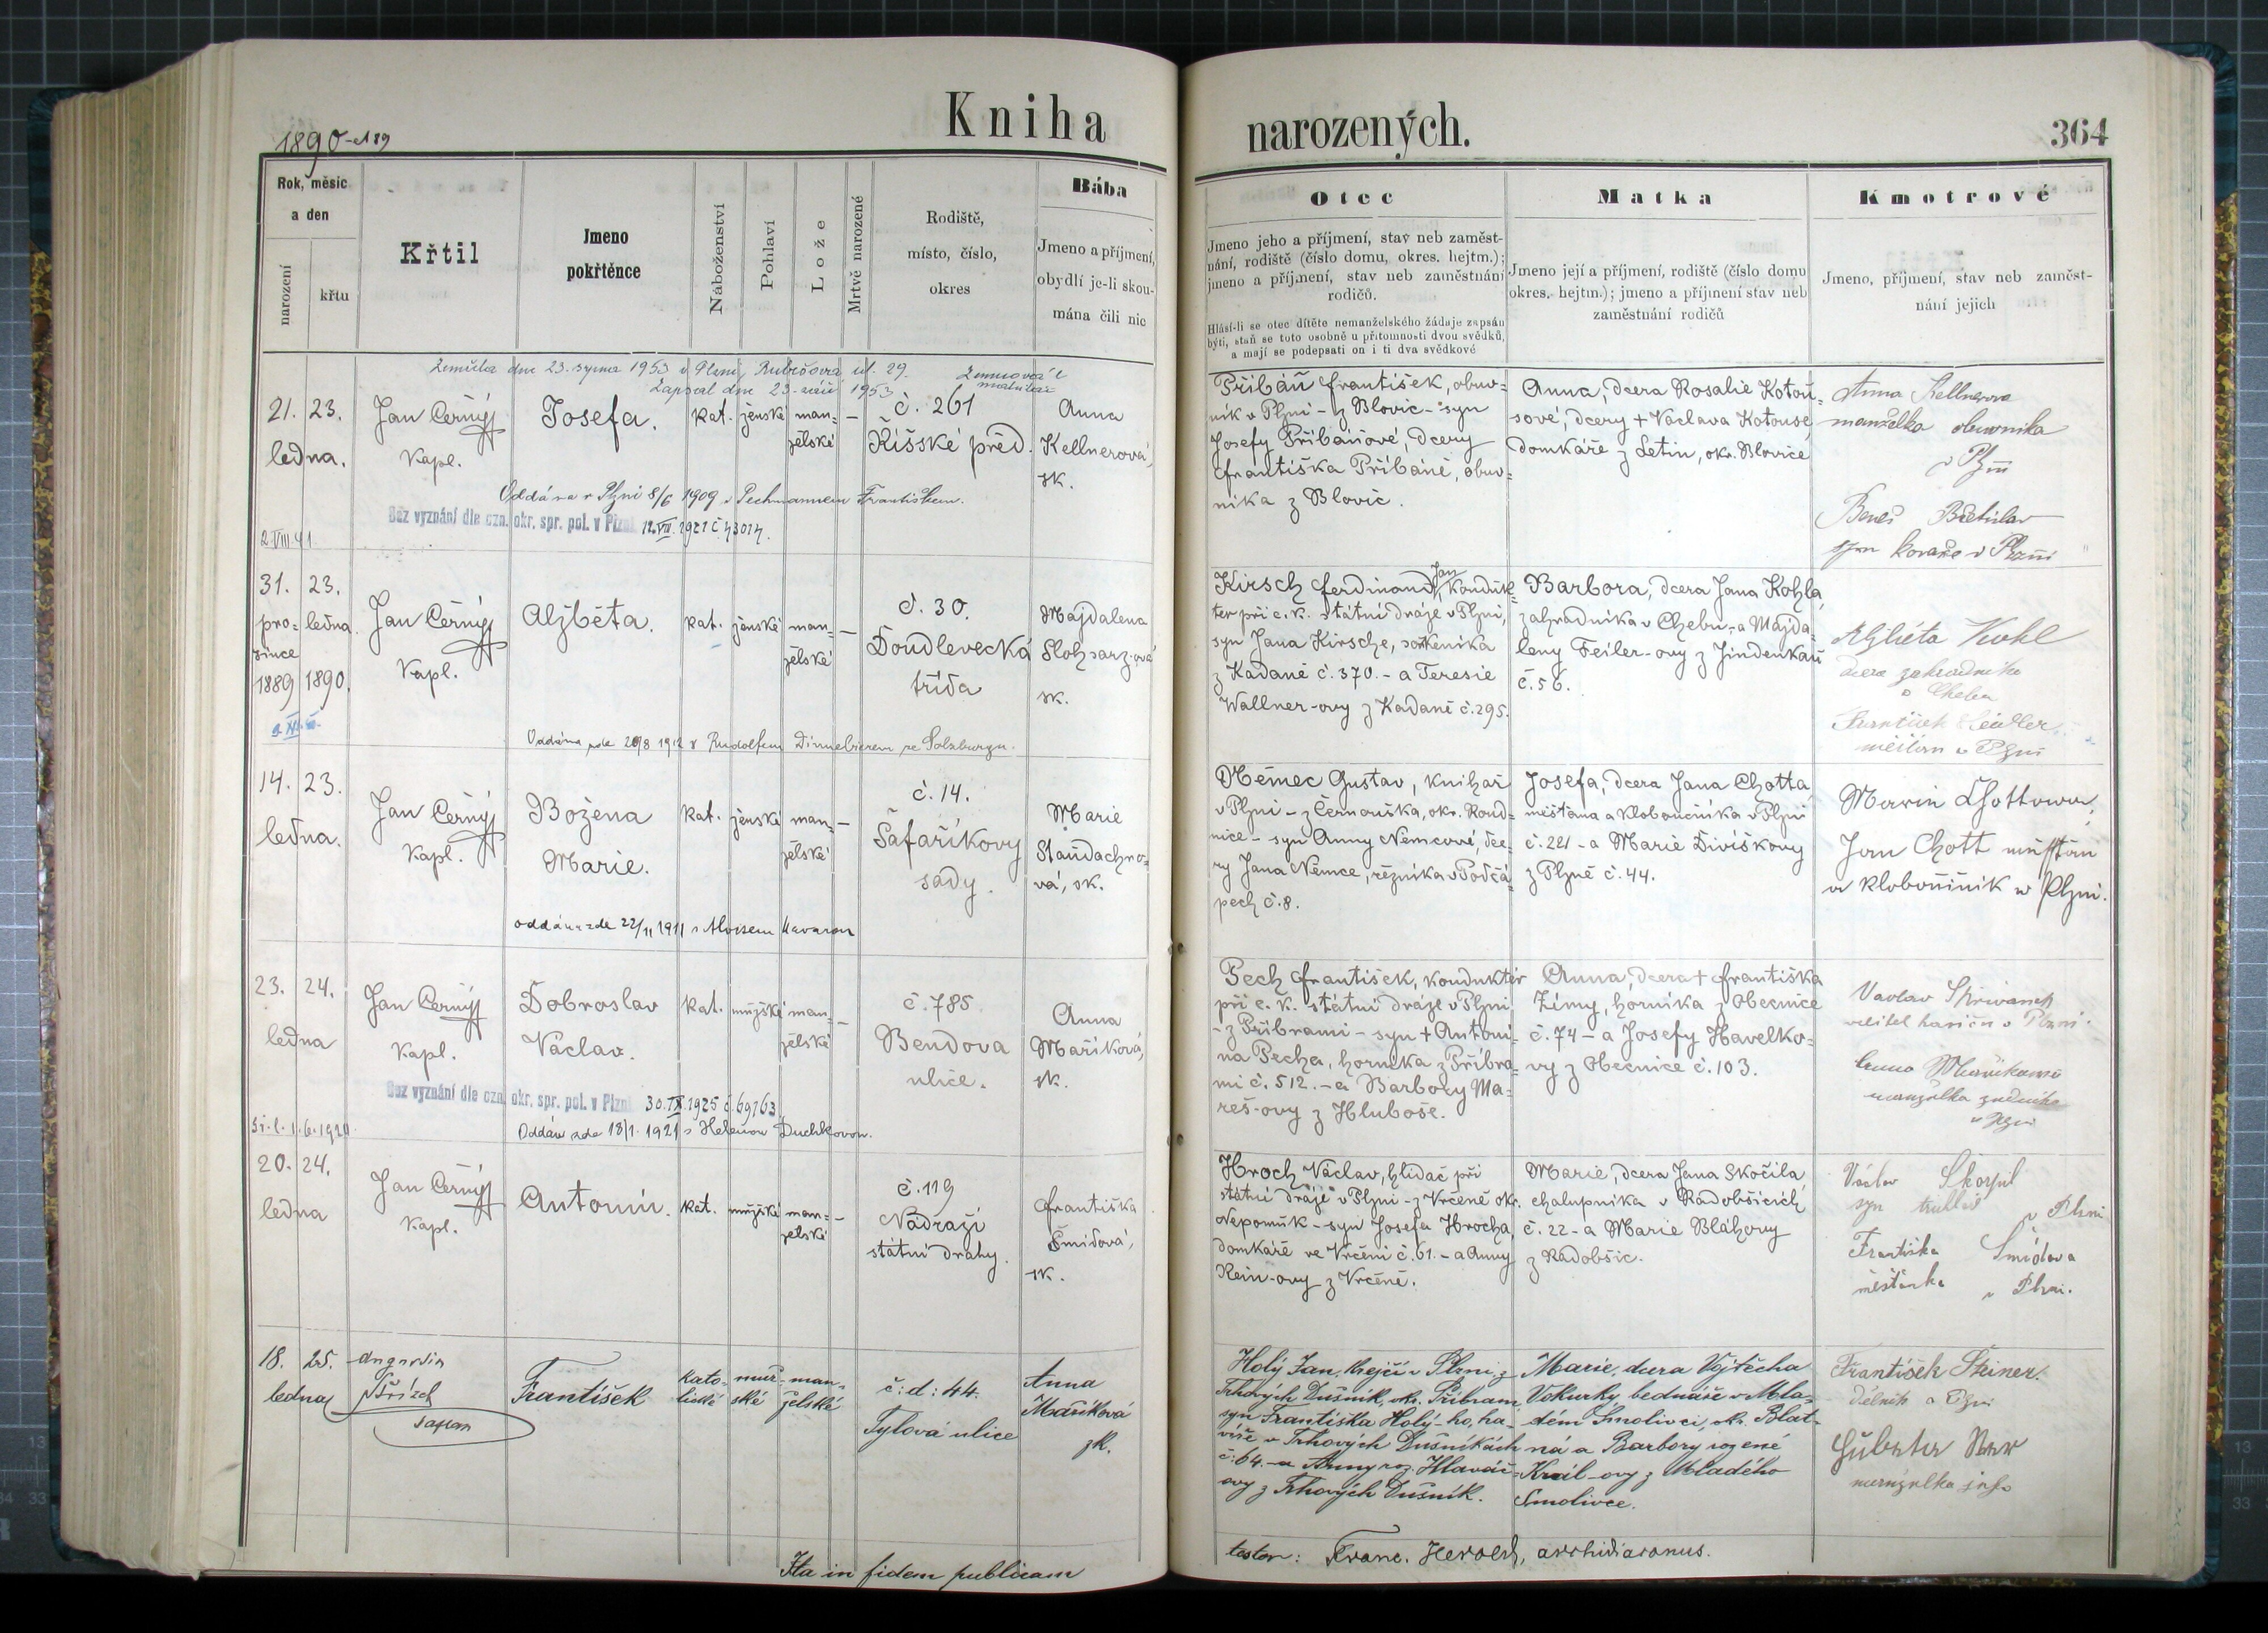 1890
Kniha
narozených.
364
Rok, měsíc
a den
narození
křtu
Křtil
Jmeno
pokřtěnce
Náboženství
Pohlaví
Lože
Mrtvě narozené
Rodiště,
místo, číslo,
okres
Bába
Jmeno a příjmení,
obydlí je-li skou-
mána čili nic
Otec
Jmeno jeho a příjmení, stav neb zaměst-
nání, rodiště (číslo domu, okres. hejtm.);
jmeno a příjmení, stav neb zaměstnání
rodičů.
Hlásí-li se otec dítěte nemanželského žádaje zapsán
býti, staň se toto osobně u přítomnosti dvou svědků,
a mají se podepsati on i ti dva svědkové
Matka
Jmeno její a příjmení, rodiště (číslo domu
okres. hejtm.); jmeno a příjmení stav neb
zaměstnání rodičů
Kmotrové
Jmeno, příjmení, stav neb zaměst-
nání jejich
Zemřela dne 23. srpna 1953 v Plzni, Rubešova ul. 29.
Zapsal dne 23. září 1953
21. 23.
ledna.
Jan Černý
Kapl.
Josefa.
kat. ženské man=
želské
č. 261
Říšské před.
Anna
Kellnerová,
zk.
Přibáň František, obuv-
ník v Plzni - z Blovic - syn
Josefy Přibáňové, dcery
Františka Přibáně, obuv-
níka z Blovic.
Anna, dcera Rosalie Kotou-
sové, dcery + Václava Kotouse,
domkáře z Letin, okr. Blovice
Anna Kellnerova
manželka obuvníka
v Plzni
Beneš Břetislav
syn kováře v Plzni
Oddána v Plzni 8/6 1909 s Pechmannem Františkem.
Bez vyznání dle ozn. okr. spr. pol. v Plzni 12.VIII.1921 č. 43014.
2.VIII.41
31. 23.
pro= ledna.
since
1889 1890.
Jan Černý
Kapl.
Alžběta.
kat. ženské man=
želské
č. 30.
Doudlevecká
třída
Majdalena
zk.
Kirsch Ferdinand Jan, konduk=
ter při c. k. státní dráze v Plzni,
syn Jana Kirsche, soukeníka
z Kadaně č. 370. - a Teresie
Wallner-ovy z Kadaně č. 295.
Barbora, dcera Jana Kohla,
zahradníka v Chebu, a Majda-
leny Feiler-ovy z Jindenkau
č. 56.
Alžběta Kohl
dcera zahradníka
z Cheba
František Seidler
měšťan v Plzni
Oddána zde 20/8 1912 s Rudolfem Dirnebierem ze Salzburgu.
14. 23.
ledna.
Jan Černý
Kapl.
Božena
Marie.
kat. ženské man=
želské
č. 14.
Šafaříkovy
sady.
Marie
Staudachro-
vá, zk.
Němec Gustav, knihař
v Plzni - z Černouška, okr. Roud=
nice - syn Anny Němcové, dce-
ry Jana Němce, řezníka v Počá-
pech č. 8.
Josefa, dcera Jana Chotta,
měšťana a kloboučníka v Plzni
č. 221 - a Marie Divíškovy
z Plzně č. 44.
Marie Chottowa,
Jan Chott
a Kloboučník w Plzni.
oddána zde 22/11 1911 s Aloisem
23. 24.
ledna
Jan Černý
Kapl.
Dobroslav
Václav.
kat. mužské man=
želské
č. 785
Bendova
ulice.
Anna
Maříková,
zk.
Pech František, konduktér
při c. k. státní dráze v Plzni,
- z Příbrami - syn + Antoní-
na Pecha, horníka z Příbra=
mi č. 512. - a Barbory Ma-
reš-ovy z Hluboše.
Anna, dcera + Františka
Zímy, horníka z Obecnice
č. 74 - a Josefy Havelko-
vy z Obecnice č. 103.
Vaclav Skřivanek
velitel hasičů v Plzni.
Anna Mařikowa
manželka zedníka
v Plzni
Bez vyznání dle ozn. okr. spr. pol. v Plzni 30.IX.1925 č. 69763.
Oddán zde 18/1. 1921 s Helenou Duchkovou.
20. 24.
ledna
Jan Černý
Kapl.
Antonín.
kat. mužské man=
želské
č. 119
Nádraží
státní dráhy.
Františka
Šmidová,
zk.
Hroch Václav, hlídač při
státní dráze v Plzni - z Vrčeně okr.
Nepomuk - syn Josefa Hrocha,
domkáře ve Vrčeni č. 61. - a Anny
Rein-ovy z Vrčeně.
Marie, dcera Jana Skočila,
chalupníka v Radobšicích,
č. 22 - a Marie Bláhovy
z Radobšic.
Václav Skočil
syn
v Plzni
Františka Šmídova
měšťanka v Plzni.
18. 25.
ledna
Augustin
Střízek
kaplan
František
kato- muž- man-
lické ské želské
č: d: 44.
Tylová ulice
Anna
Maříková
zk.
Holý Jan, krejčí v Plzni z
Trhových Dušník, okr. Příbram,
syn Františka Holý-ho, ha-
víře v Trhových Dušníkách
č. 64. - a Anny roz. Hlaváč-
ovy z Trhových Dušník.
Marie, dcera Vojtěcha
Vokurky, bednáře v Mla-
dém Smolivci, okr. Blat-
ná a Barbory rozené
Král-ovy z Mladého
Smolivce.
František Steiner.
dělník v Plzni
manželka jeho
Ita in fidem publicam
testor: Franc. Herold, archidiaconus.